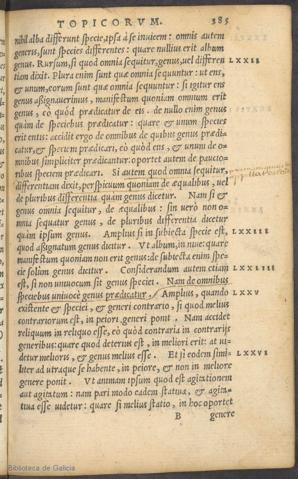 TOPICORVM. 385
nihil alba differunt specie, ipsa à se inuicem: omnis autem
generis, sunt species differentes: quare nullius erit album
genus. Rursum, si quod omnia sequitur, genus, uel differen LXXII
tiam dixit. Plura enim sunt quæ omnia sequuntur: ut ens,
& unum, eorum sunt quæ omnia sequuntur: si igitur ens
genus assignauerimus, manifestum quoniam omnium erit
genus, eò quòd prædicatur de eis. de nullo enim genus
quàm de speciebus prædicatur: quare & unum species
erit entis: accidit ergo de omnibus de quibus genus prædi-
catur, & speciem prædicari, eò quòd ens, & unum de o-
mnibus simpliciter prædicantur: oportet autem de paucio-
ribus speciem prædicari. Si autem quod omnia sequitur,
differentiam dixit, perspicuum quoniam de æqualibus, uel
de pluribus differentia quàm genus dicetur. Nam si &
genus omnia sequitur, de æqualibus: sin uerò non o-
mnia sequatur genus, de pluribus differentia dicetur
quàm ipsum genus. Amplius si in subiecta specie est, LXXIII
quod assignatum genus dicitur. Vt album, in niue: quare
manifestum quoniam non erit genus: de subiecta enim spe-
cie solùm genus dicitur. Considerandum autem etiam LXXIIII
est, si non uniuocum sit genus speciei. Nam de omnibus
speciebus uniuocè genus prædicatur. Amplius, quando LXXV
existente & speciei, & generi contrario, si quod melius
contrariorum est, in peiore generi ponit. Nam accidet
reliquum in reliquo esse, eò quòd contraria in contrarijs
generibus: quare quod deterius est, in meliori erit: at ui-
detur melioris, & genus melius esse. Et si eodem simi- LXXVI
liter ad utraque se habente, in peiore, & non in meliore
genere ponit. Vt animam ipsum quod est agitationem
aut agitatum: nam pari modo eadem statiua, & agita-
tiua esse uidetur: quare si melius statio, in hoc oportet
B genere
Biblioteca de Galicia